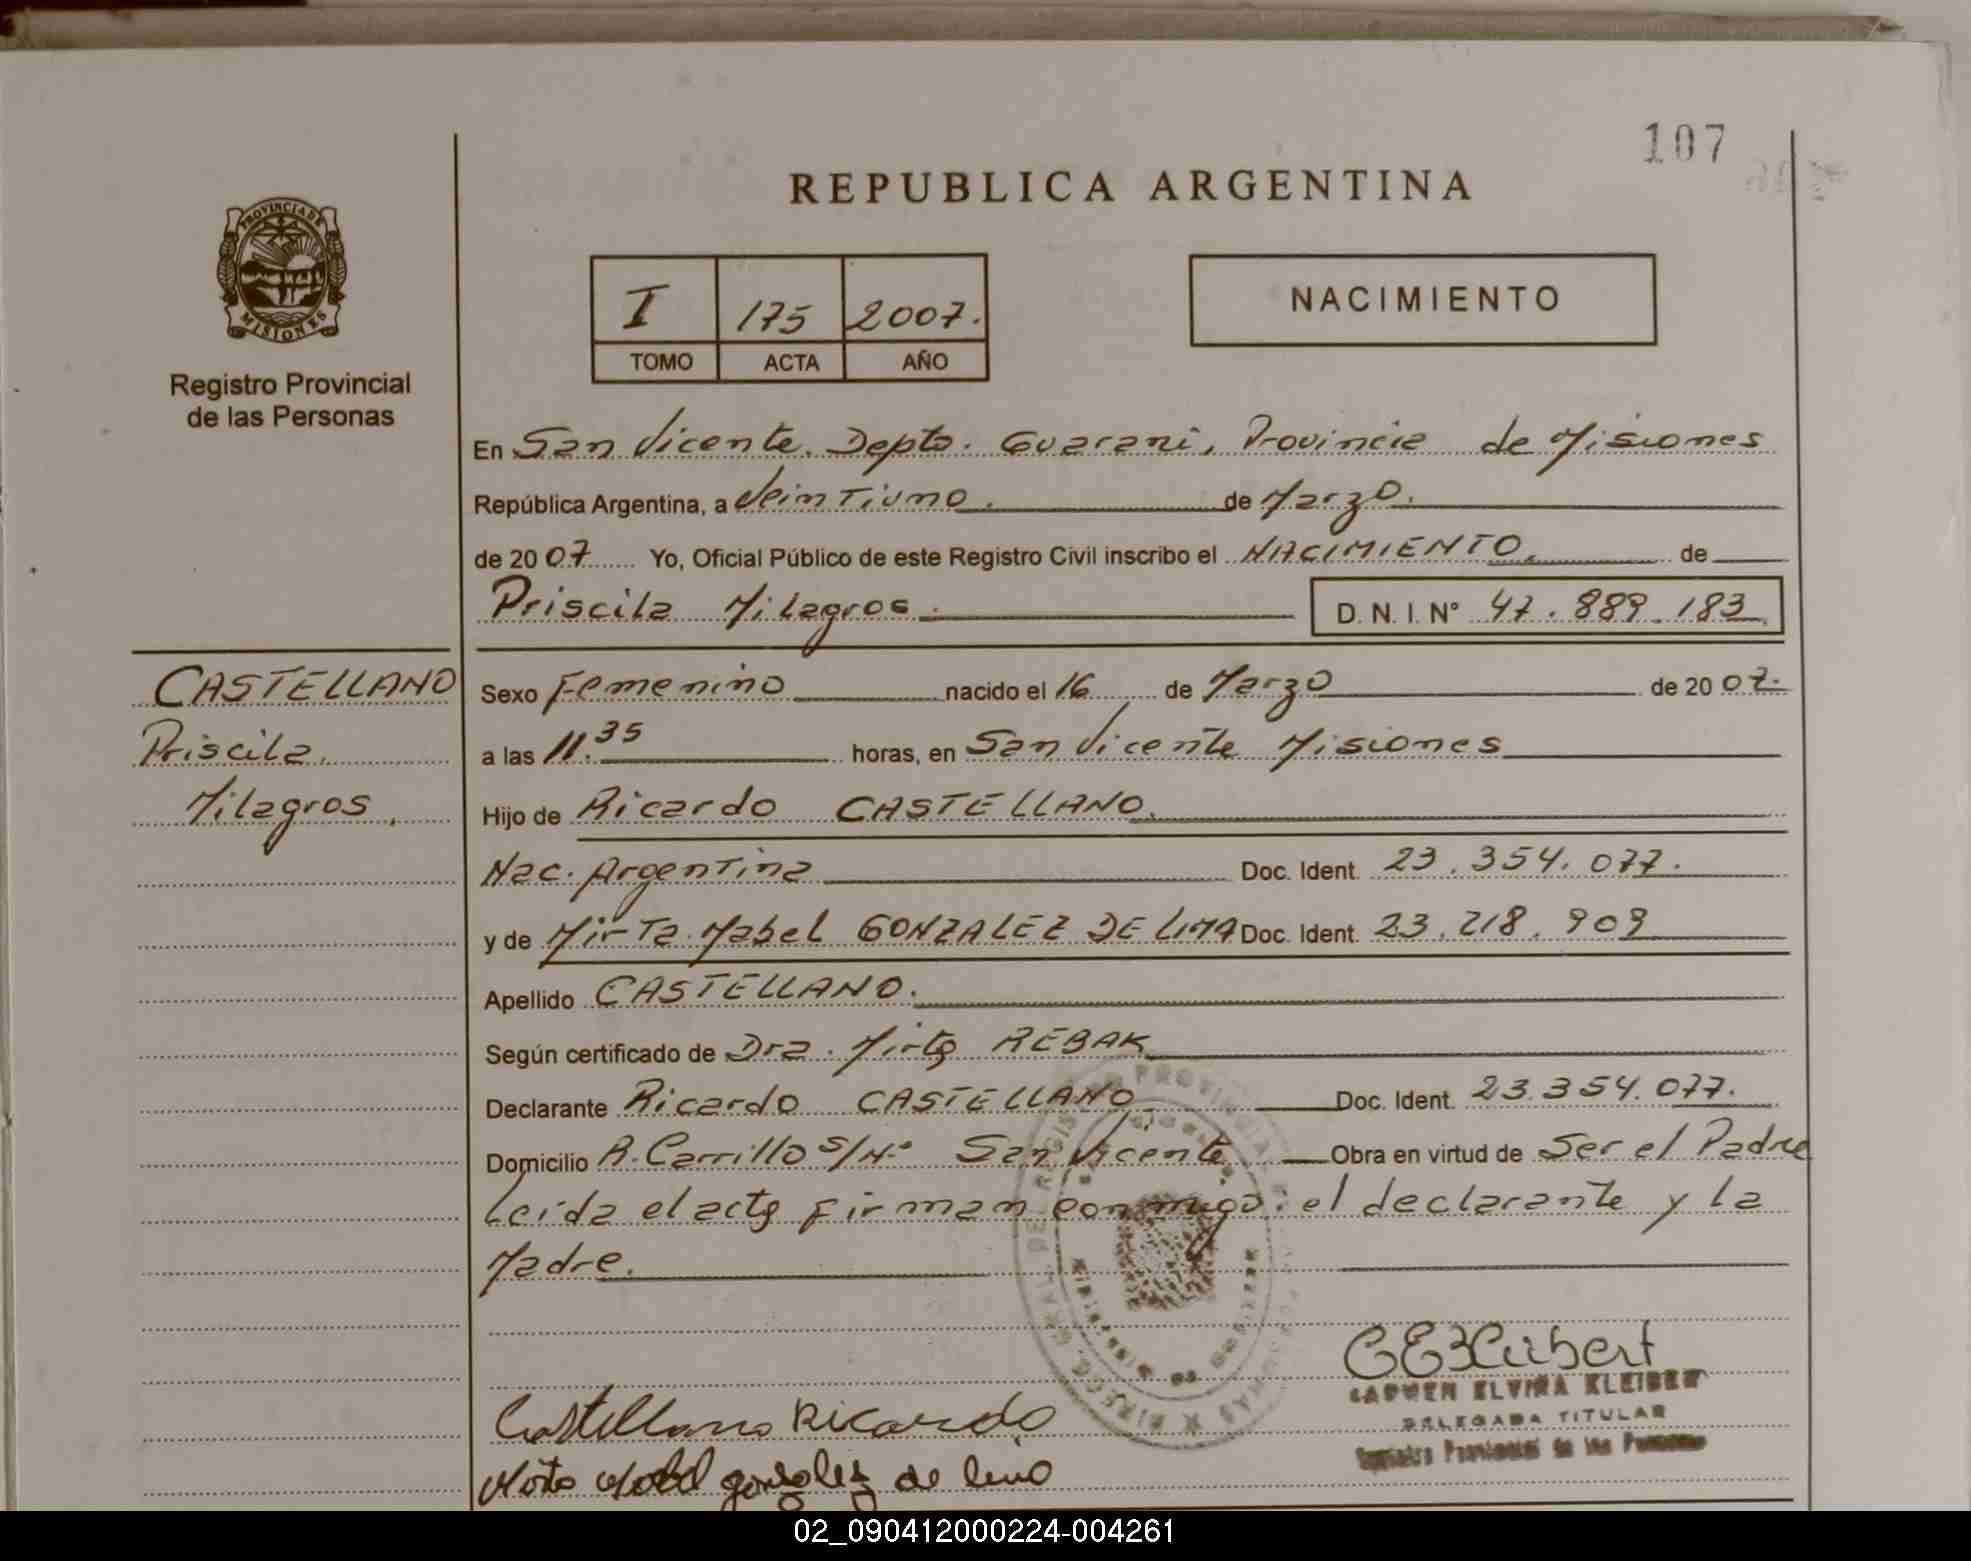 107
REPUBLICA ARGENTINA
PROVINCIA DE
MISIONES
Registro Provincial
de las Personas
I 175 2007.
TOMO ACTA AÑO
NACIMIENTO
En San Vicente. Depto. Guarani, Provincia de Misiones
República Argentina, a Veintiuno. de Marzo.
de 2007 Yo, Oficial Público de este Registro Civil inscribo el NACIMIENTO. de
Priscila Milagros. D. N. I. N° 47.889.183
CASTELLANO
Priscila
Milagros.
Sexo Femenino nacido el 16 de Marzo de 2007.
a las 11.35 horas, en San Vicente Misiones
Hijo de Ricardo CASTELLANO.
Nac. Argentina Doc. Ident. 23.354.077.
y de Mirta Mabel GONZALEZ DE LIMA Doc. Ident. 23.218.909
Apellido CASTELLANO.
Según certificado de Dra. Mirta REBAK
Declarante Ricardo CASTELLANO Doc. Ident. 23.354.077.
Domicilio R. Carrillo S/N° San Vicente Obra en virtud de Ser el Padre
Leída el acta firman conmigo: el declarante y la
Madre.
CARMEN ELVIRA KLEIBER
DELEGADA TITULAR
Registro Provincial de las Personas
Castellano Ricardo
Mirta Mabel gonzalez de lima
02_090412000224-004261